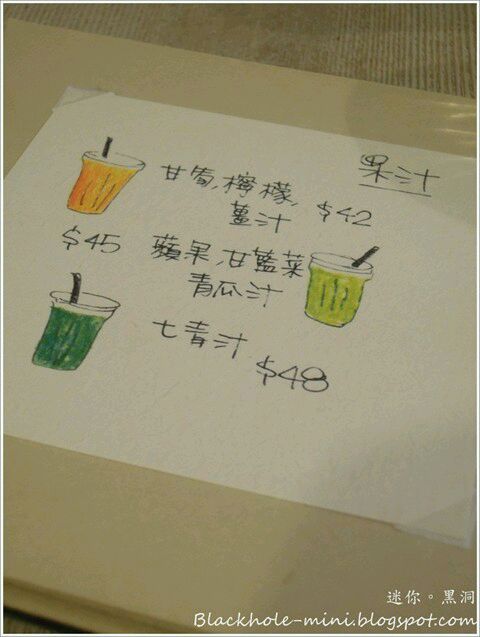 果汁
甘荀,檸檬,
薑汁 $42
$45 蘋果,甘藍菜
青瓜汁
七青汁
$48
迷你。黑洞
Blackhole-mini.blogspot.com